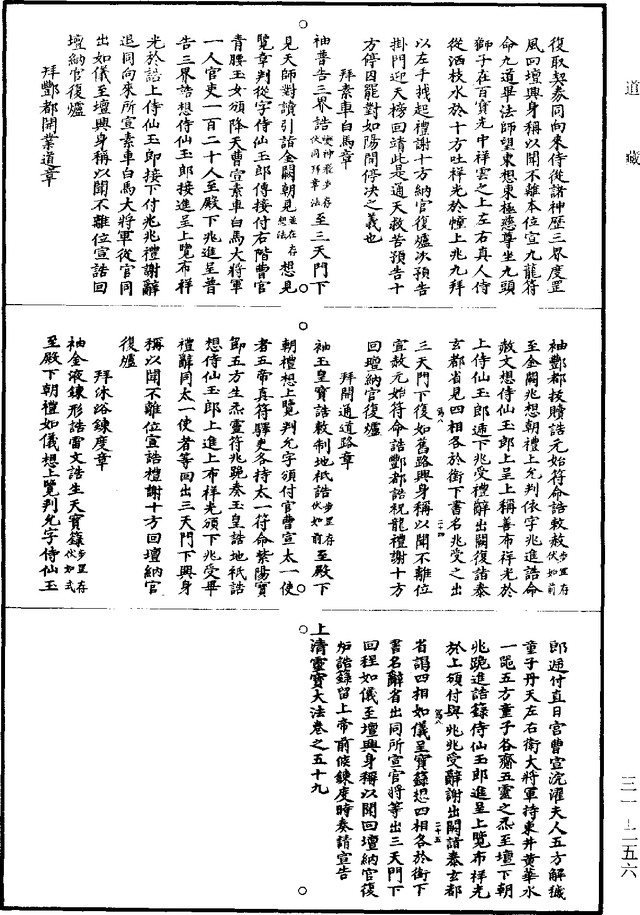 道藏
復取契券同向來侍從諸神歷三界度罡
風回壇興身稱以聞不離本位宣九龍符
命九道畢法師望東想東極慈尊坐九頭
獅子在百寶光中祥雲之上左右真人侍
從洒枝水於十方吐祥光於幢上兆九拜
以左手找起禮謝十方納官復爐次預告
掛門迎天榜回靖此是通天救苦預告十
方停囚罷對如陽間停决之義也
拜素車白馬章
袖普告三界誥變神飛步存伏同拜章法至三天門下
見天師對讀引詣金闕朝見並在存想法想見
覽章判從字侍仙玉郎傳接付右階曹官
青腰玉女頒降天曹宣素車白馬大將軍
一人官吏一百二十人至殿下兆進呈普
告三界誥想侍仙玉郎接進呈上覽布祥
光於誥上侍仙玉郎接下付兆兆禮謝辭
退同向來所宣素車白馬大將軍從官同
出如儀至壇興身稱以聞不離位宣誥回
壇納官復爐
拜酆都開業道章
袖酆都拔贖誥元始符命誥敕赦步罡存伏如前
至金闕兆想朝禮上允判依字兆進誥命
赦文想侍仙玉郎上呈上稱善布祥光於
上侍仙玉郎遞下兆受禮辭出闕復詣泰
玄都省見四相各於銜下書名兆受之出
三天門下復如舊路興身稱以聞不離位
宣赦元始符命誥酆都誥祝龍禮謝十方
回壇納官復爐
拜開通道路章
袖玉皇寶誥敕制地祇誥步罡存伏如前至殿下
朝禮想上覽判允字頒付官曹宣太一使
者五帝真符驛吏各持太一符命紫陽寶
節五方生炁靈符兆跪奏玉皇誥地祇誥
想侍仙玉郎上進上布祥光頒下兆受畢
禮辭同太一使者等回出三天門下興身
稱以聞不離位宣誥禮謝十方回壇納官
復爐
拜沐浴鍊度章
袖金液鍊形誥雷文誥生天寶籙步罡存伏如式
至殿下朝禮如儀想上覽判允字侍仙玉
郎遞付直日官曹宣浣濯夫人五方解穢
童子丹天左右衛大將軍持東井黃華水
一甖五方童子各齎五靈之炁至壇下朝
兆跪進誥籙侍仙玉郎進呈上覽布祥光
於上頒付與兆兆受辭謝出闕詣泰玄都
省謁四相如儀呈寶籙想四相各於銜下
書名辭省出同所宣官將等出三天門下
回程如儀至壇興身稱以聞回壇納官復
爐誥籙留上帝前候鍊度時奏請宣告
上清靈寶大法卷之五十九
三一－二五六